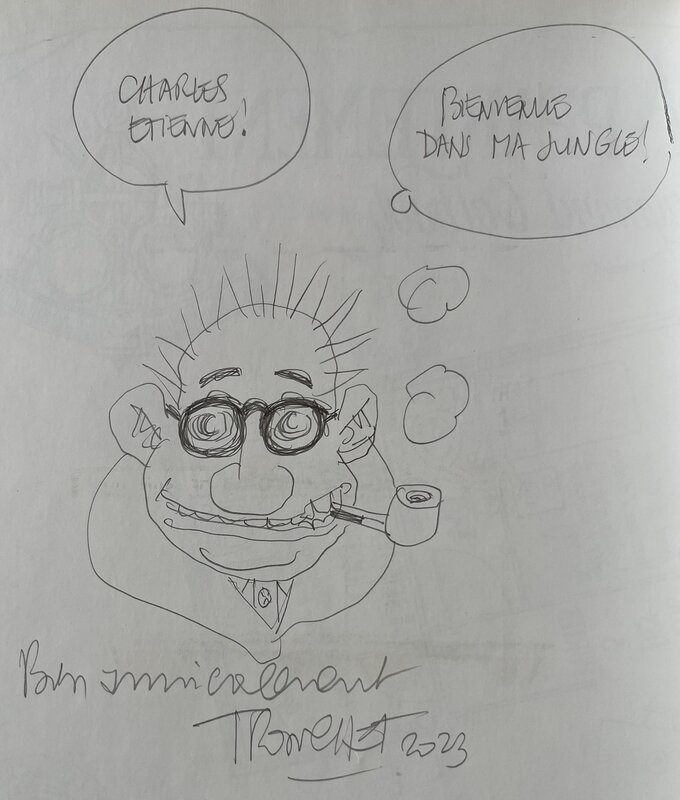 CHARLES
ETIENNE!
BIENVENUE
DANS MA JUNGLE!
Bien amicalement
TRONCHET 2023